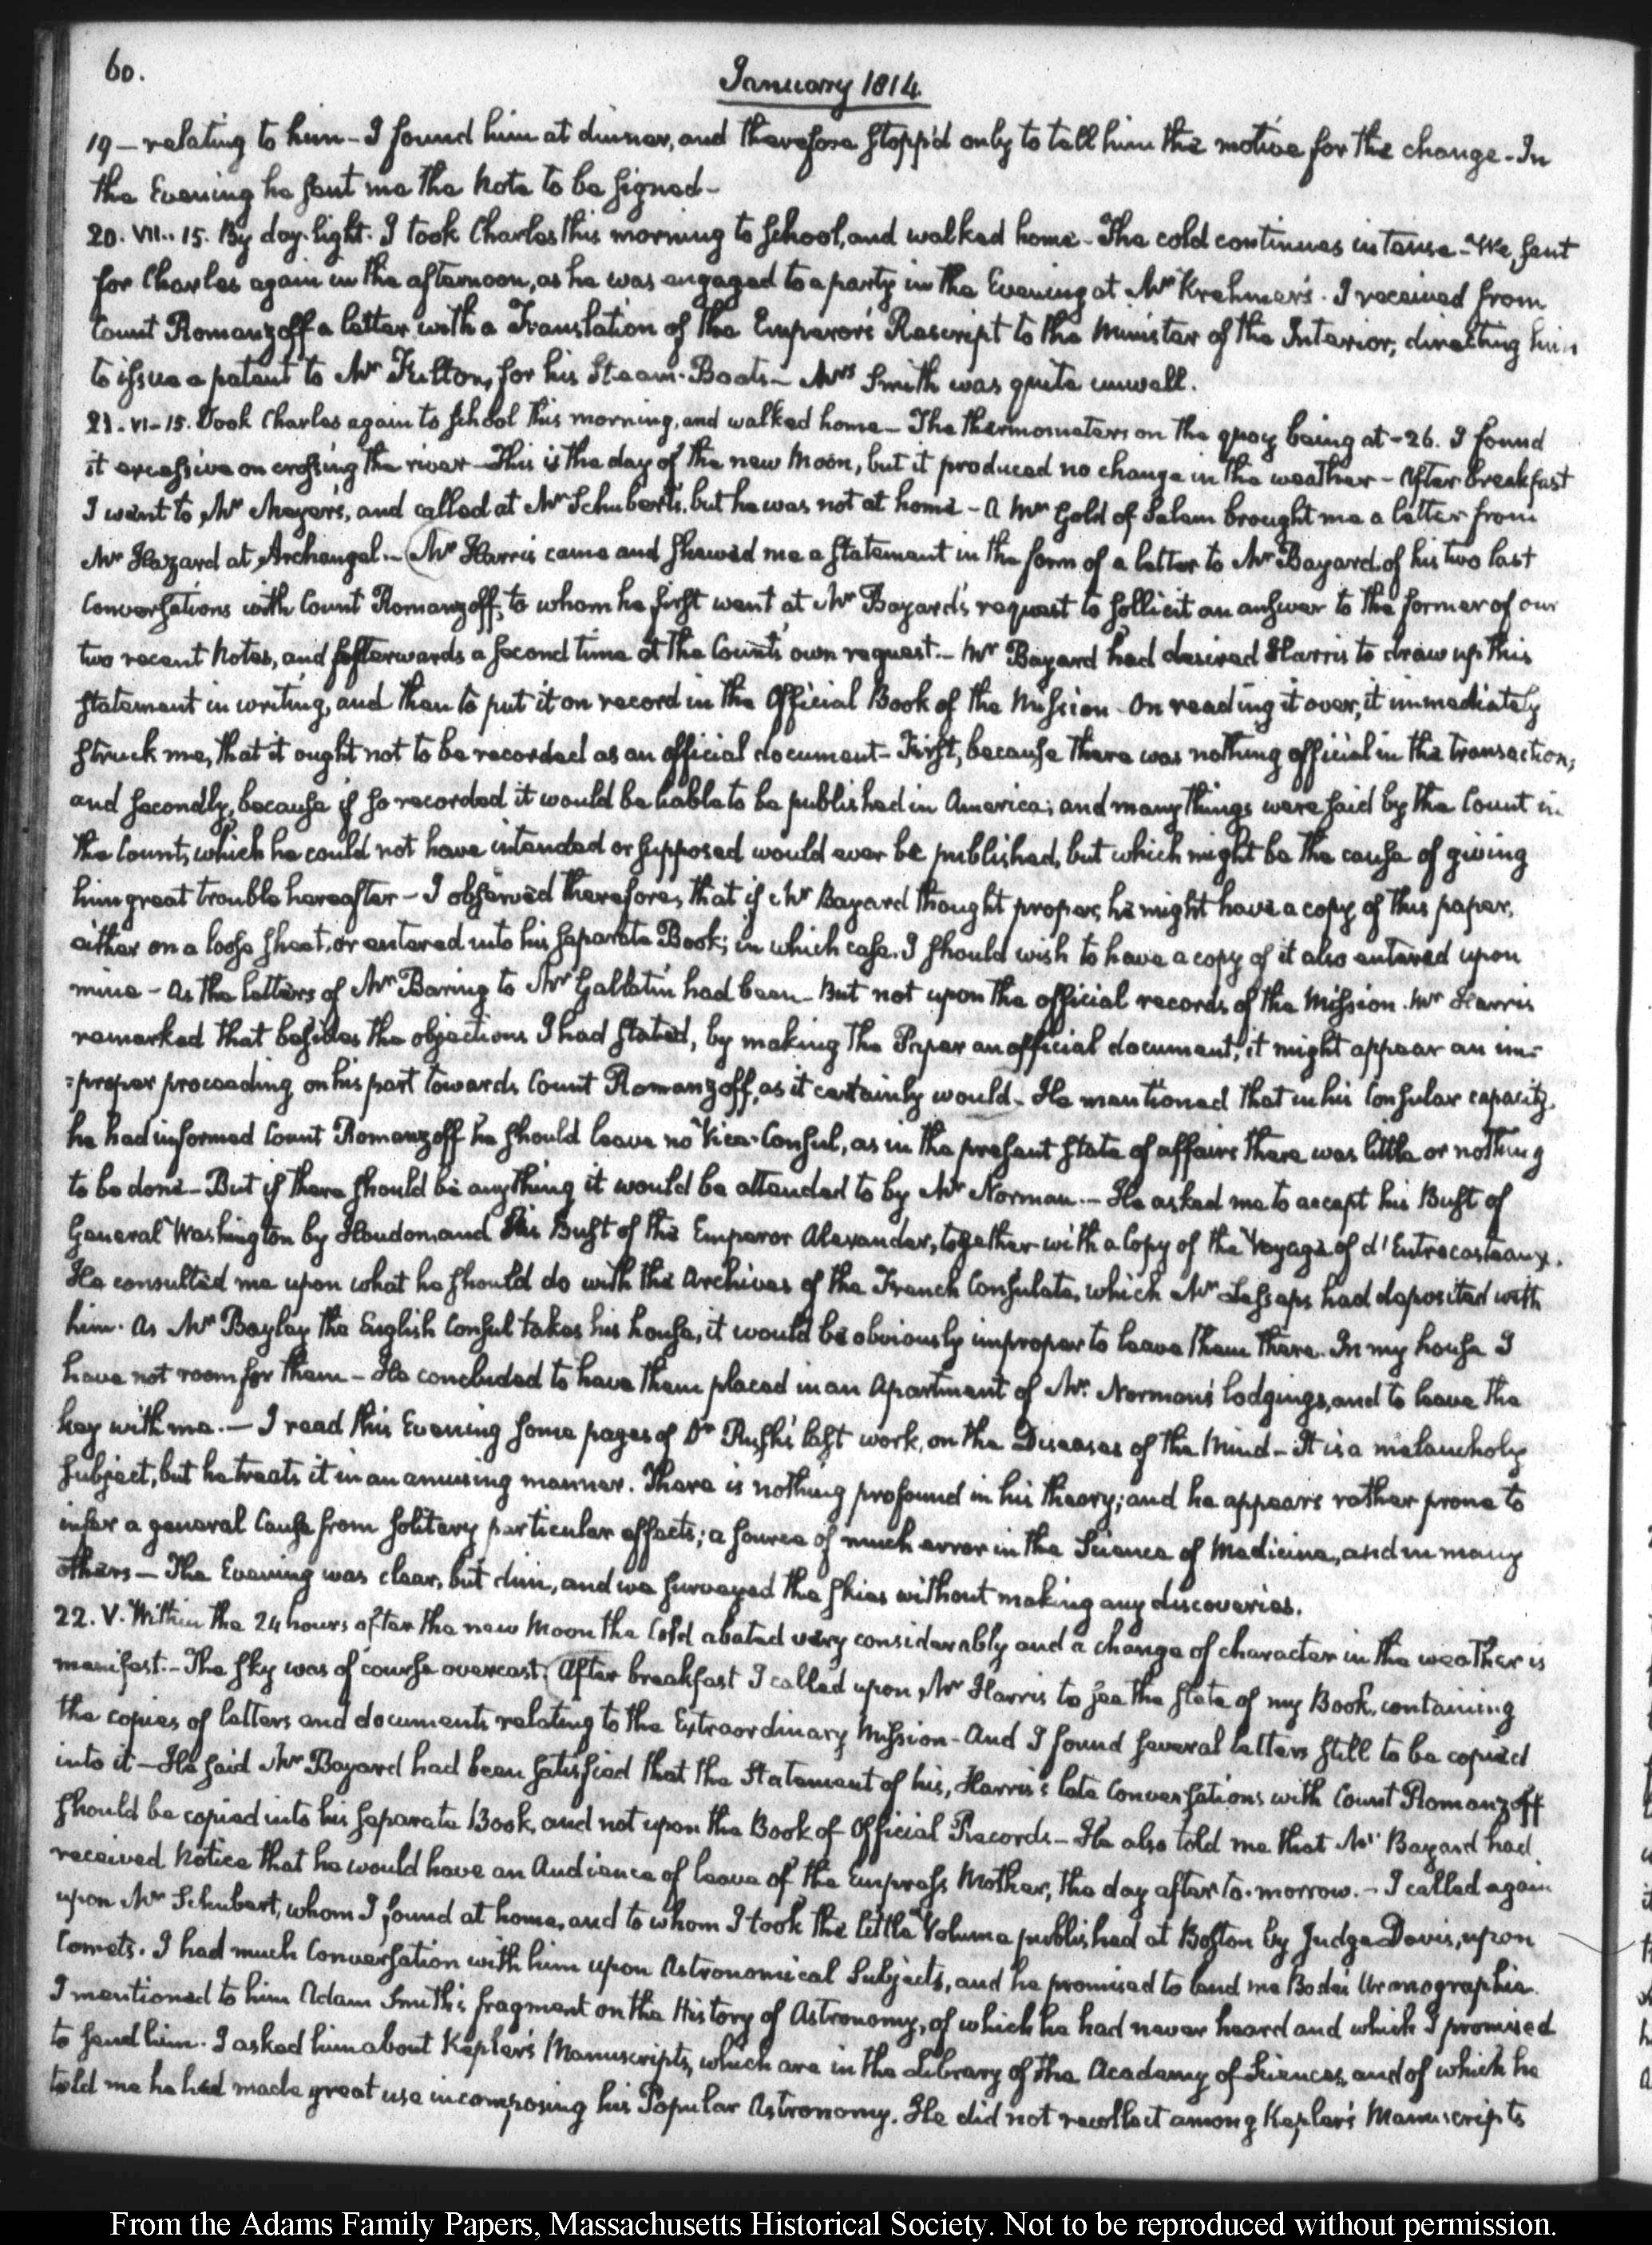 60.
January 1814.
19 — relating to him - I found him at dinner, and therefore stopp'd only to tell him the motive for the change - In
the Evening he sent me the Note to be signed -
20. VII.. 15. By day-light. I took Charles this morning to School, and walked home - The cold continues intense - We, sent
for Charles again in the afternoon, as he was engaged to a party in the Evening at Mr Krehmer's. I received from
Count Romanzoff a letter with a Translation of the Emperor's Rescript to the Minister of the Interior, directing him
to issue a patent to Mr Fulton, for his Steam-Boats - Mrs Smith was quite unwell.
21. VI - 15. Took Charles again to School this morning, and walked home - The thermometers on the quay being at -26. I found
it excessive on crossing the river - This is the day of the new Moon, but it produced no change in the weather - After breakfast
I went to Mr Meyer's, and called at Mr Schubert's, but he was not at home - A Mr Gold of Salem brought me a letter from
Mr Hazard at Archangel. - Mr Harris came and shewed me a statement in the form of a letter to Mr Bayard, of his two last
Conversations with Count Romanzoff, to whom he first went at Mr Bayard's request to sollicit an answer to the former of our
two recent Notes, and afterwards a second time at the Count's own request. - Mr Bayard had desired Harris to draw up this
statement in writing, and then to put it on record in the Official Book of the Mission - On reading it over, it immediately
struck me, that it ought not to be recorded as an official document - First, because there was nothing official in the transaction;
and secondly, because if so recorded it would be liable to be published in America; and many things were said by the Count in
the Count, which he could not have intended or supposed would ever be published, but which might be the cause of giving
him great trouble hereafter - I observed therefore, that if Mr Bayard thought proper, he might have a copy of this paper,
either on a loose sheet, or entered into his separate Book; in which case, I should wish to have a copy of it also entered upon
mine - As the letters of Mr Baring to Mr Gallatin had been - But not upon the official records of the Mission. Mr Harris
remarked that besides the objections I had stated, by making the Paper an official document, it might appear an im=
=proper proceeding on his part towards Count Romanzoff, as it certainly would - He mentioned that in his Consular capacity,
he had informed Count Romanzoff he should leave no Vice-Consul, as in the present state of affairs there was little or nothing
to be done - But if there should be anything it would be attended to by Mr Norman. - He asked me to accept his Bust of
General Washington by Houdon, and his Bust of the Emperor Alexander, together with a Copy of the Voyage of d'Entrecasteaux.
He consulted me upon what he should do with the Archives of the French Consulate, which Mr Lesseps had deposited with
him. As Mr Bayley the English Consul takes his house, it would be obviously improper to leave them there. In my house I
have not room for them - He concluded to have them placed in an Apartment of Mr. Norman's lodgings, and to leave the
key with me. — I read this Evening some pages of Dr Rush's last work, on the Diseases of the Mind - It is a melancholy
subject, but he treats it in an amusing manner. There is nothing profound in his theory; and he appears rather prone to
infer a general Cause from solitary particular effects; a source of much error in the Science of Medicine, and in many
others — The Evening was clear, but dim, and we surveyed the skies without making any discoveries.
22. V. Within the 24 hours after the new Moon the Cold abated very considerably and a change of character in the weather is
manifest. - The sky was of course overcast. After breakfast I called upon Mr Harris to see the state of my Book, containing
the copies of letters and documents relating to the Extraordinary Mission - And I found several letters still to be copied
into it - He said Mr Bayard had been satisfied that the Statement of his, Harris's late Conversations with Count Romanzoff
should be copied into his separate Book, and not upon the Book of Official Records - He also told me that Mr Bayard had
received Notice that he would have an Audience of leave of the Empress Mother, the day after to-morrow. - I called again
upon Mr Schubert, whom I found at home, and to whom I took the little Volume published at Boston by Judge Davis, upon
Comets. I had much Conversation with him upon Astronomical Subjects, and he promised to lend me Bode's Uranographia.
I mentioned to him Adam Smith's fragment on the History of Astronomy, of which he had never heard and which I promised
to send him. I asked him about Kepler's Manuscripts, which are in the Library of the Academy of Sciences, and of which he
told me he had made great use in composing his Popular Astronomy. He did not recollect among Kepler's Manuscripts
From the Adams Family Papers, Massachusetts Historical Society. Not to be reproduced without permission.